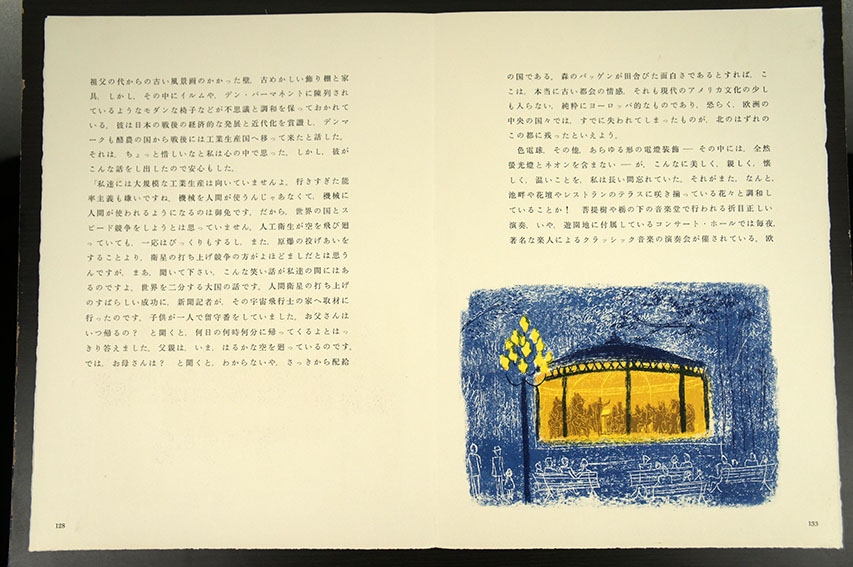 祖父の代からの古い風景画のかかった壁，古めかしい飾り棚と家
具，しかし，その中にイルムや，デン・パーマネントに陳列され
ているようなモダンな椅子などが不思議と調和を保っておかれて
いる。彼は日本の戦後の経済的な発展と近代化を賞讃し，デンマ
ークも酪農の国から戦後には工業生産国へ移って来たと話した。
それは，ちょっと惜しいなと私は心の中で思った。しかし，彼が
こんな話をし出したので安心もした。
「私達には大規模な工業生産は向いていませんよ。行きすぎた能
率主義も嫌いですね。機械を人間が使うんじゃあなくて，機械に
人間が使われるようになるのは御免です。だから，世界の国とス
ピード競争をしようとは思っていません。人工衛生が空を飛び廻
っていても，一応はびっくりするし，また，原爆の投げあいを
することより，衛星の打ち上げ競争の方がよほどましだとは思う
んですが，まあ，聞いて下さい。こんな笑い話が私達の間にはあ
るのですよ。世界を二分する大国の話です。人間衛星の打ち上げ
のすばらしい成功に，新聞記者が，その宇宙飛行士の家へ取材に
行ったのです。子供が一人で留守番をしていました。お父さんは
いつ帰るの？　と聞くと，何日の何時何分に帰ってくるよとはっ
きり答えました。父親は，いま，はるかな空を廻っているのです。
では，お母さんは？　と聞くと，わからないや，さっきから配給
128
の国である。森のバッゲンが田舎びた面白さであるとすれば，こ
こは，本当に古い都会の情感，それも現代のアメリカ文化の少し
も入らない，純粋にヨーロッパ的なものであり，恐らく，欧洲の
中央の国々では，すでに失われてしまったものが，北のはずれの
この都に残ったといえよう。
色電球，その他，あらゆる形の電燈装飾―その中には，全然
螢光燈とネオンを含まない―が，こんなに美しく，親しく，懐
しく，温いことを，私は長い間忘れていた。それがまた，なんと，
池畔や花壇やレストランのテラスに咲き揃っている花々と調和し
ていることか！　菩提樹や栃の下の音楽堂で行われる折目正しい
演奏，いや，遊園地に付属しているコンサート・ホールでは毎夜，
著名な楽人によるクラッシック音楽の演奏会が催されている。欧
133